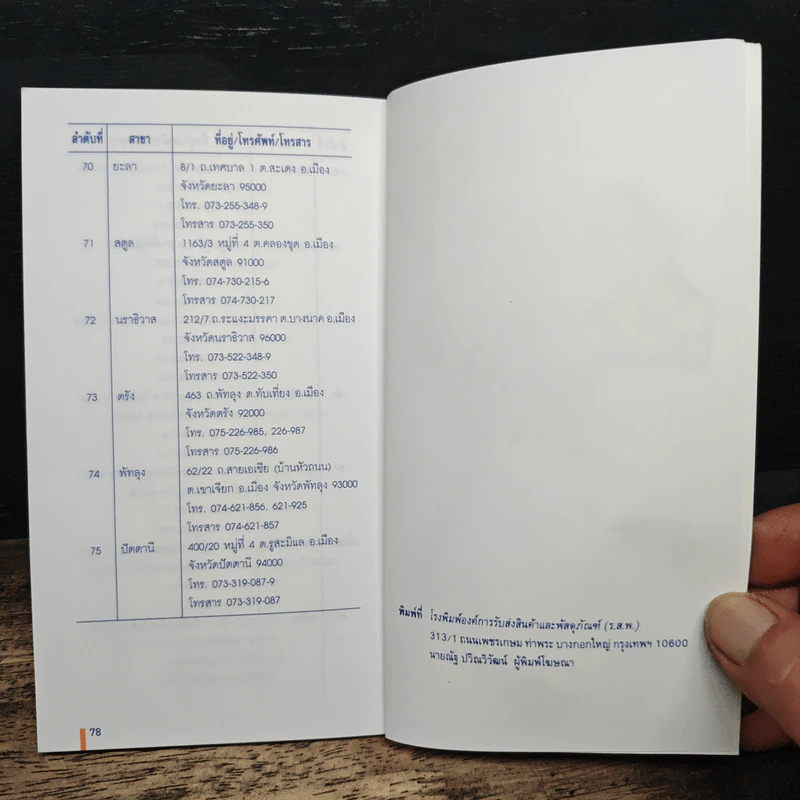 ลำดับที่ สาขา ที่อยู่/โทรศัพท์/โทรสาร
70 ยะลา 8/1 ถ.เทศบาล 1 ต.สะเตง อ.เมือง
จังหวัดยะลา 95000
โทร. 073-255-348-9
โทรสาร 073-255-350
71 สตูล 1163/3 หมู่ที่ 4 ต.คลองขุด อ.เมือง
จังหวัดสตูล 91000
โทร. 074-730-215-6
โทรสาร 074-730-217
72 นราธิวาส 212/7 ถ.ระแงะมรรคา ต.บางนาค อ.เมือง
จังหวัดนราธิวาส 96000
โทร. 073-522-348-9
โทรสาร 073-522-350
73 ตรัง 463 ถ.พัทลุง ต.ทับเที่ยง อ.เมือง
จังหวัดตรัง 92000
โทร. 075-226-985, 226-987
โทรสาร 075-226-986
74 พัทลุง 62/22 ถ.สายเอเชีย (บ้านหัวถนน)
ต.เขาเจียก อ.เมือง จังหวัดพัทลุง 93000
โทร. 074-621-856, 621-925
โทรสาร 074-621-857
75 ปัตตานี 400/20 หมู่ที่ 4 ต.รูสะมิแล อ.เมือง
จังหวัดปัตตานี 94000
โทร. 073-319-087-9
โทรสาร 073-319-087
78
พิมพ์ที่ โรงพิมพ์องค์การรับส่งสินค้าและพัสดุภัณฑ์ (ร.ส.พ.)
313/1 ถนนเพชรเกษม ท่าพระ บางกอกใหญ่ กรุงเทพฯ 10600
นายณัฐ ปวิณวิวัฒน์ ผู้พิมพ์โฆษณา